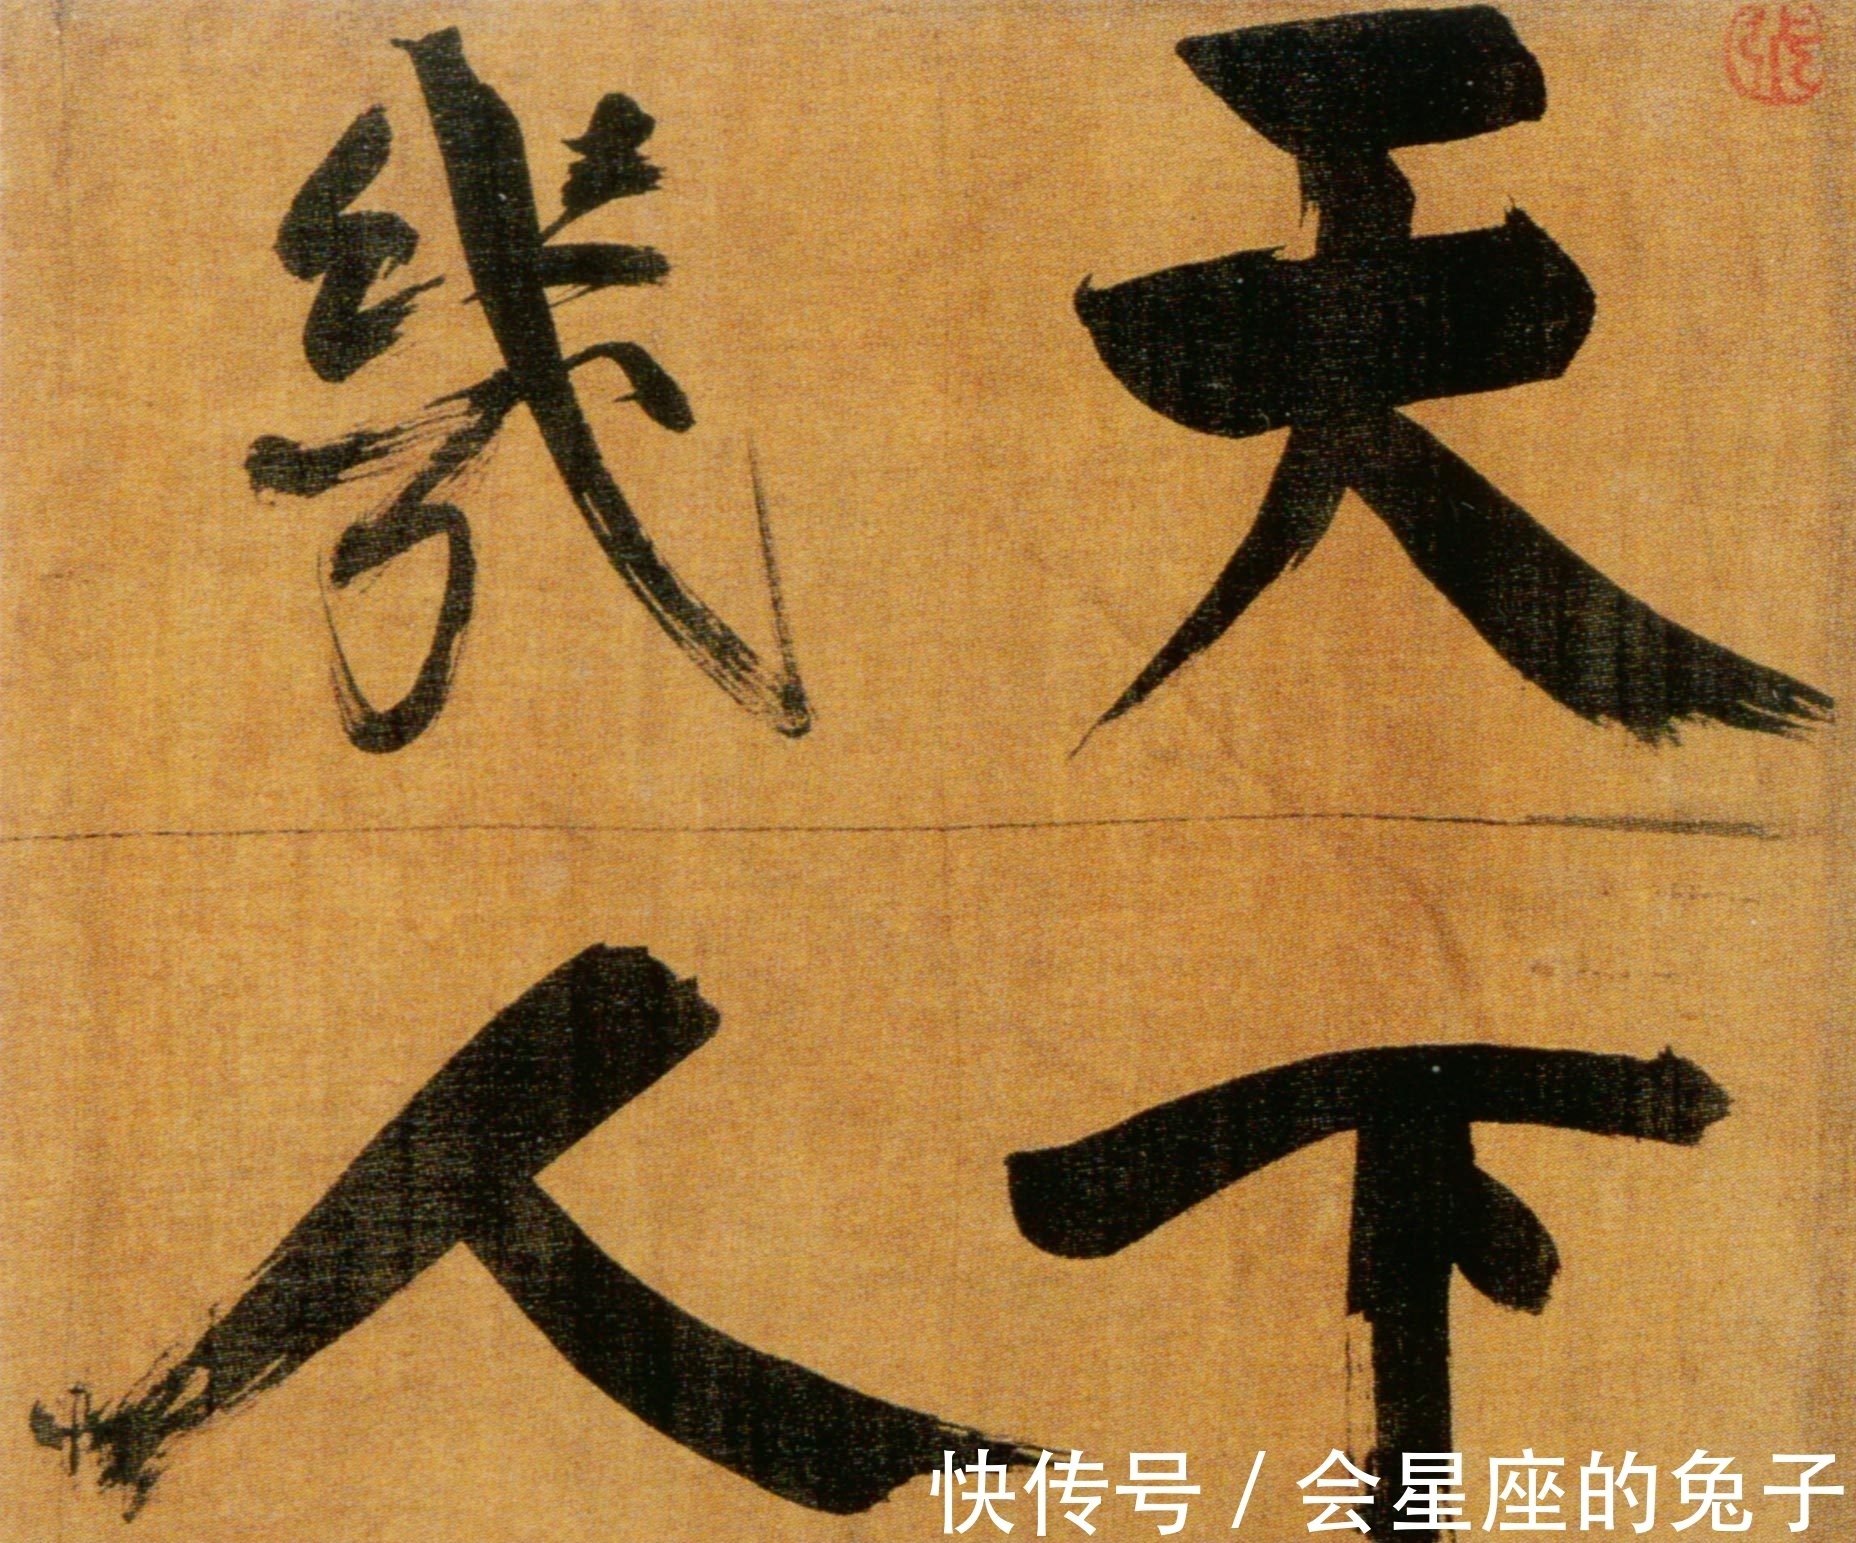 天下
幾人
張
快传号 / 会星座的兔子